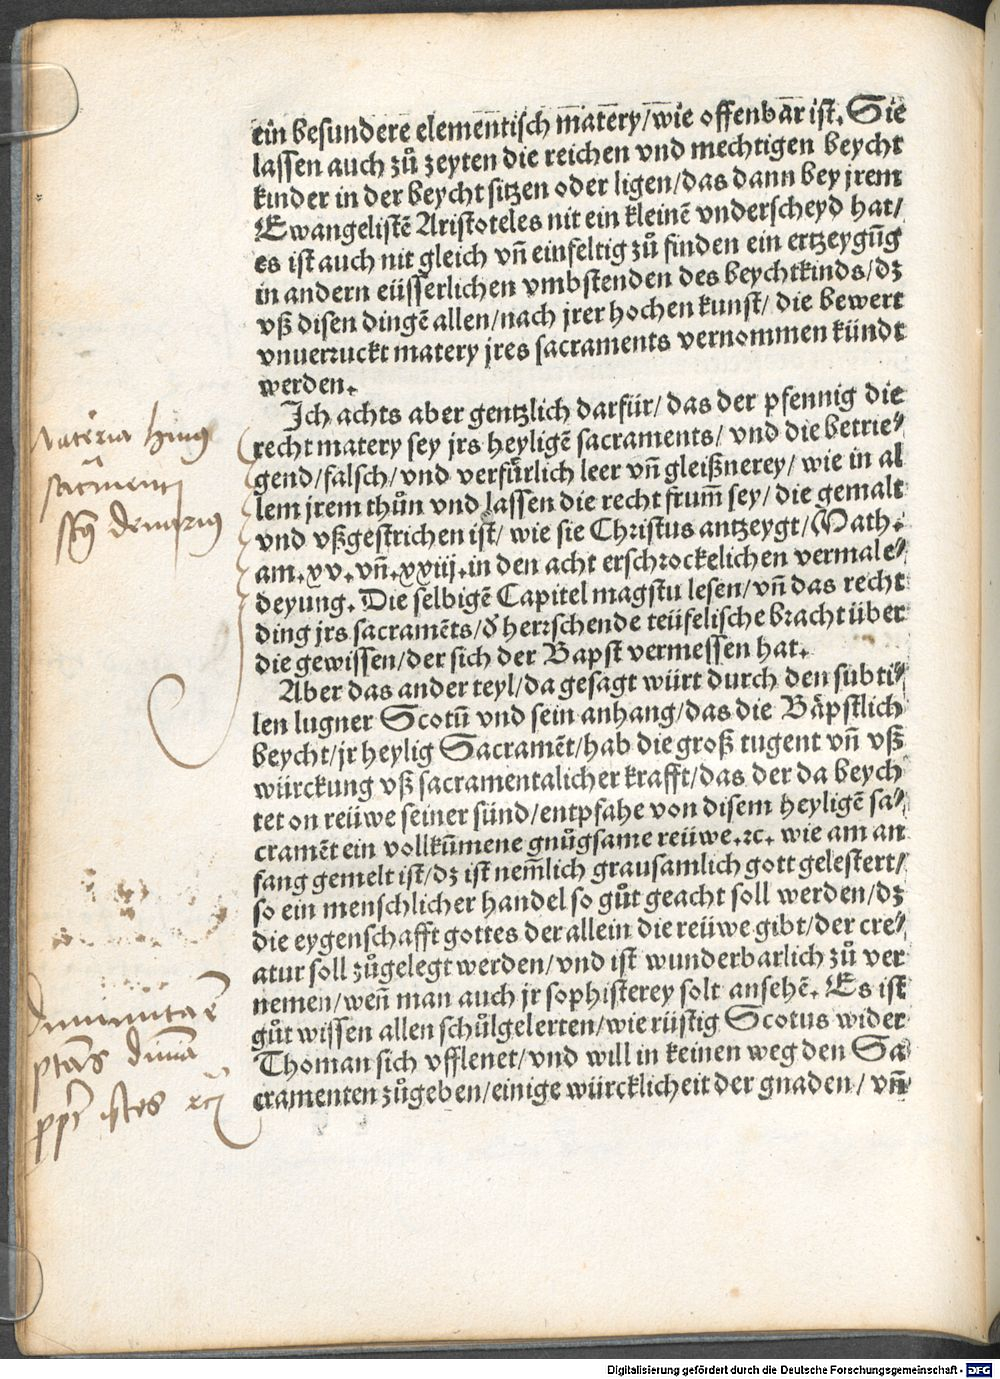 ein besundere elementisch matery/wie offenbar ist. Sie
lassen auch zů zeyten die reichen vnd mechtigen beycht
kinder in der beycht sitzen oder ligen/das dann bey jrem
Ewangelistẽ Aristoteles nit ein kleinẽ vnderscheyd hat/
es ist auch nit gleich vñ einfeltig zů finden ein ertzeygũg
in andern eüsserlichen vmbstenden des beychtkinds/dz
vß disen dingẽ allen/nach jrer hochen kunst/ die bewert
vnuerruckt matery jres sacraments vernommen kündt
werden.
Ich achts aber gentzlich darfür/ das der pfennig die
recht matery sey jrs heyligẽ sacraments/ vnd die betrie⸗
gend/falsch/vnd verfürlich leer vñ gleißnerey/ wie in al
lem jrem thůn vnd lassen die recht frum̃ sey/ die gemalt
vnd vßgestrichen ist/ wie sie Christus antzeygt/Math⸗
am.xv.vñ.xxiij.in den acht erschrockelichen vermale⸗
deyũg. Die selbigẽ Capitel magstu lesen/vñ das recht
ding jrs sacramẽts/ď herrschende teüfelische bracht über
die gewissen/der sich der Bapst vermessen hat.
Aber das ander teyl/da gesagt würt durch den subti⸗
len lugner Scotũ vnd sein anhang/das die Bäpstlich
beycht/jr heylig Sacramẽt/hab die groß tugent vñ vß
würckung vß sacramentalicher krafft/das der da beych
tet on reüwe seiner sünd/entpfahe von disem heyligẽ sa⸗
cramẽt ein vollkũmene gnůgsame reüwe.⁊c. wie am an
fang gemelt ist/dz ist nem̃lich grausamlich gott gelestert/
so ein menschlicher handel so gůt geacht soll werden/dz
die eygenschafft gottes der allein die reüwe gibt/der cre⸗
atur soll zůgelegt werden/vnd ist wunderbarlich zů ver
nemen/weñ man auch jr sophisterey solt ansehẽ. Es ist
gůt wissen allen schůlgelerten/wie rüstig Scotus wider
Thoman sich vfflenet/vnd will in keinen weg den Sa
cramenten zůgeben/einige würcklicheit der gnaden/ vñ
Materia huius
sacramenti
denarius
Digitalisierung gefördert durch die Deutsche Forschungsgemeinschaft - DFG